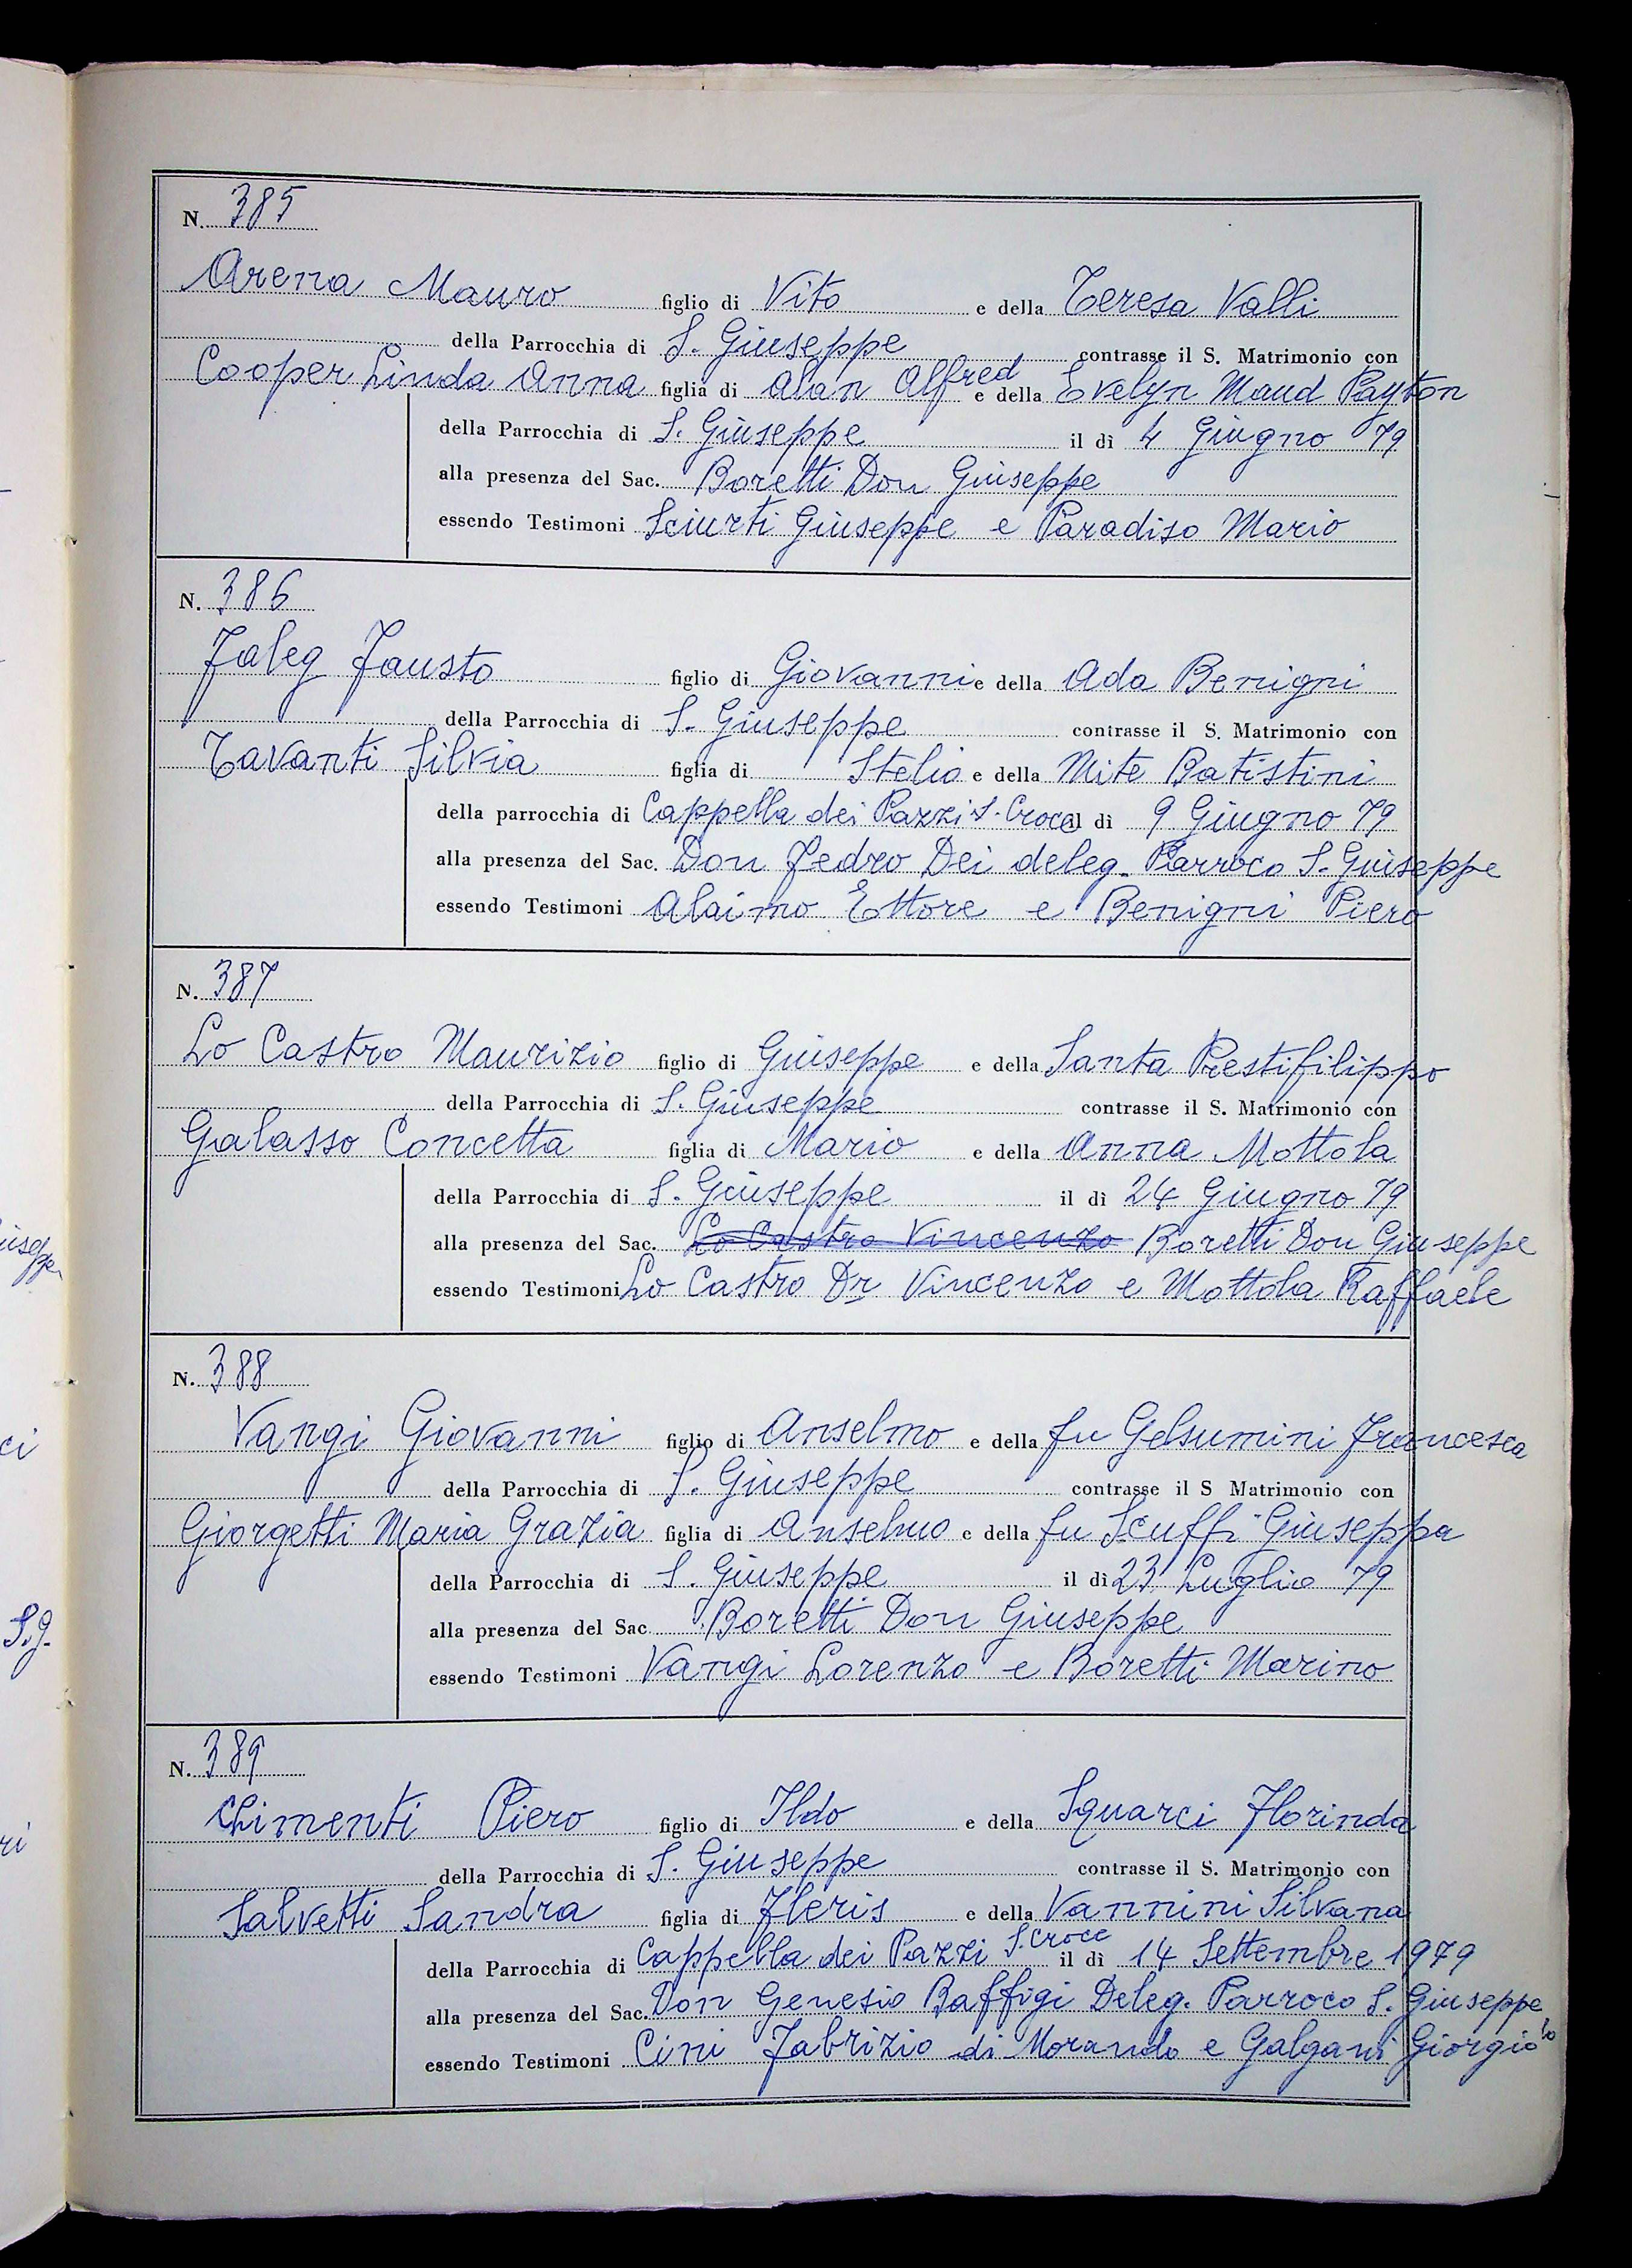 N. 385
Arena Mauro figlio di Vito e della Teresa Valli
della Parrocchia di S. Giuseppe contrasse il S. Matrimonio con
Cooper Linda Anna figlia di Alan Alfred e della Evelyn Maud Payton
della Parrocchia di S. Giuseppe il dì 4 Giugno 79
alla presenza del Sac. Boretti Don Giuseppe
essendo Testimoni Sciurti Giuseppe e Paradiso Mario
N. 386
Faleg Fausto figlio di Giovanni e della Ada Benigni
della Parrocchia di S. Giuseppe contrasse il S. Matrimonio con
Tavanti Silvia figlia di Stelio e della Mite Batistini
della parrocchia di Cappella dei Pazzi S. Croce il dì 9 Giugno 79
alla presenza del Sac. Don Fedro Dei deleg. Parroco S. Giuseppe
essendo Testimoni Alaimo Ettore e Benigni Piero
N. 387
Lo Castro Maurizio figlio di Giuseppe e della Santa Prestifilippo
della Parrocchia di S. Giuseppe contrasse il S. Matrimonio con
Galasso Concetta figlia di Mario e della Anna Mottola
della Parrocchia di S. Giuseppe il dì 24 Giugno 79
alla presenza del Sac. Lo Castro Vincenzo Boretti Don Giuseppe
essendo Testimoni Lo Castro Dr Vincenzo e Mottola Raffaele
N. 388
Vangi Giovanni figlio di Anselmo e della fu Gelsumini Francesca
della Parrocchia di S. Giuseppe contrasse il S Matrimonio con
Giorgetti Maria Grazia figlia di Anselmo e della fu Scuffi Giuseppa
della Parrocchia di S. Giuseppe il dì 23 Luglio 79
alla presenza del Sac Boretti Don Giuseppe
essendo Testimoni Vangi Lorenzo e Boretti Marino
N. 389
Chimenti Piero figlio di Ildo e della Squarci Florinda
della Parrocchia di S. Giuseppe contrasse il S. Matrimonio con
Salvetti Sandra figlia di Fleris e della Vannini Silvana
della Parrocchia di Cappella dei Pazzi S. Croce il dì 14 Settembre 1979
alla presenza del Sac. Don Genesio Baffigi Deleg. Parroco S. Giuseppe
essendo Testimoni Cini Fabrizio di Morando e Galgani Giorgio